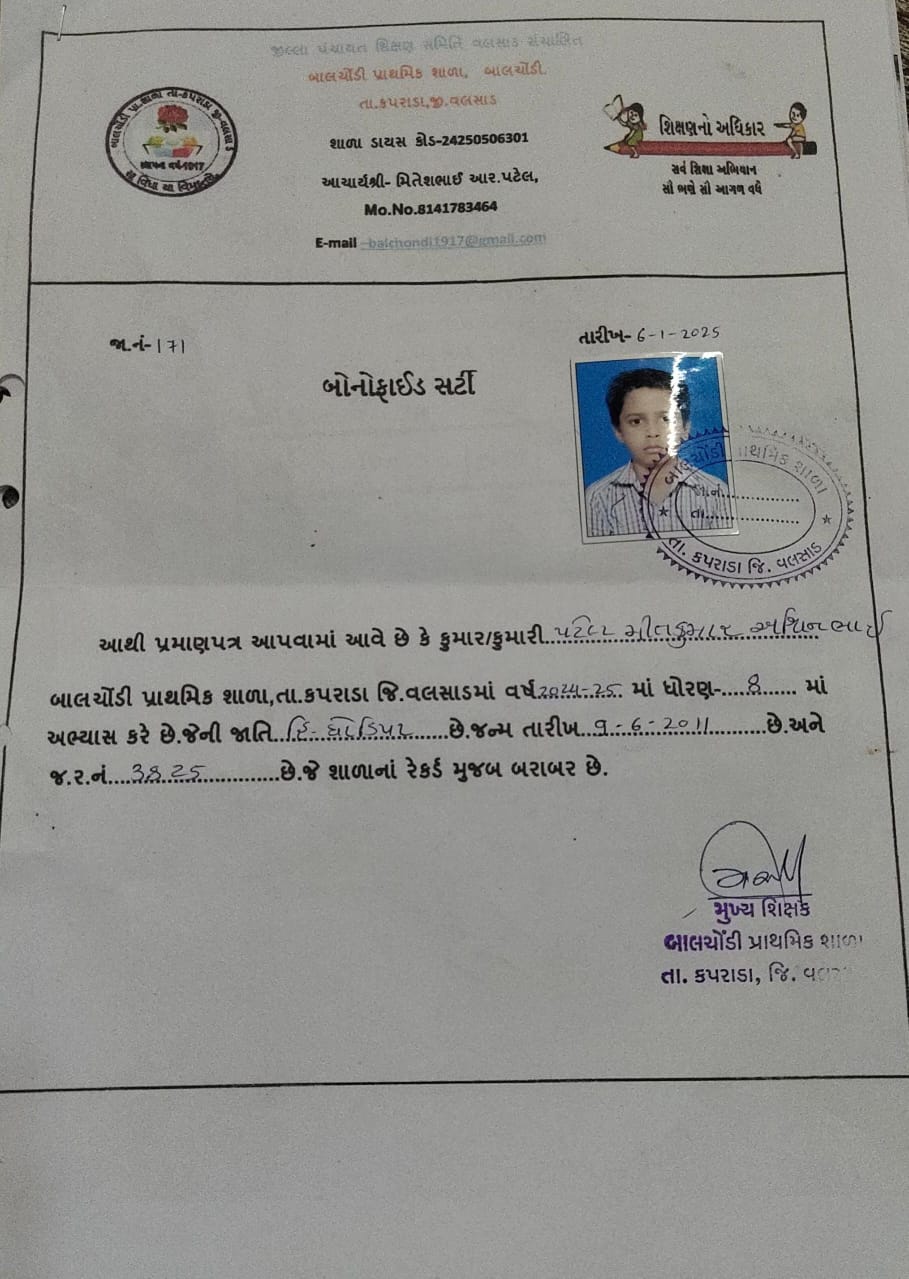 જીલ્લા પંચાયત શિક્ષણ સમિતિ વલસાડ સંચાલિત
બાલચોંડી પ્રાથમિક શાળા, બાલચોંડી.
તા.કપરાડા,જી.વલસાડ
શાળા ડાયસ કોડ-24250506301
આચાર્યશ્રી- મિતેશભાઈ આર.પટેલ,
Mo.No.8141783464
E-mail -balchondi1917@gmail.com
બાલચોંડી પ્રા.શાળા તા-કપરાડા જી-વલસાડ
સ્થાપના વર્ષ-1917
સા વિદ્યા યા વિમુક્તયે
શિક્ષણનો અધિકાર
સર્વ શિક્ષા અભિયાન
સૌ ભણે સૌ આગળ વધે
જા.નં-171
તારીખ-6-1-2025
બોનોફાઈડ સર્ટી
બાલચોંડી પ્રાથમિક શાળા
જા.નં..............
તા..................
તા. કપરાડા જિ. વલસાડ
આથી પ્રમાણપત્ર આપવામાં આવે છે કે કુમાર/કુમારી પટેલ મીતકુમાર અશ્વિનભાઈ
બાલચોંડી પ્રાથમિક શાળા,તા.કપરાડા જિ.વલસાડમાં વર્ષ 2024-25 માં ધોરણ-....8...... માં
અભ્યાસ કરે છે.જેની જાતિ હિ-ધોડિયા છે.જન્મ તારીખ 9-6-2011 છે.અને
જ.ર.નં....3825............છે.જે શાળાનાં રેકર્ડ મુજબ બરાબર છે.
મુખ્ય શિક્ષક
બાલચોંડી પ્રાથમિક શાળા
તા. કપરાડા, જિ.